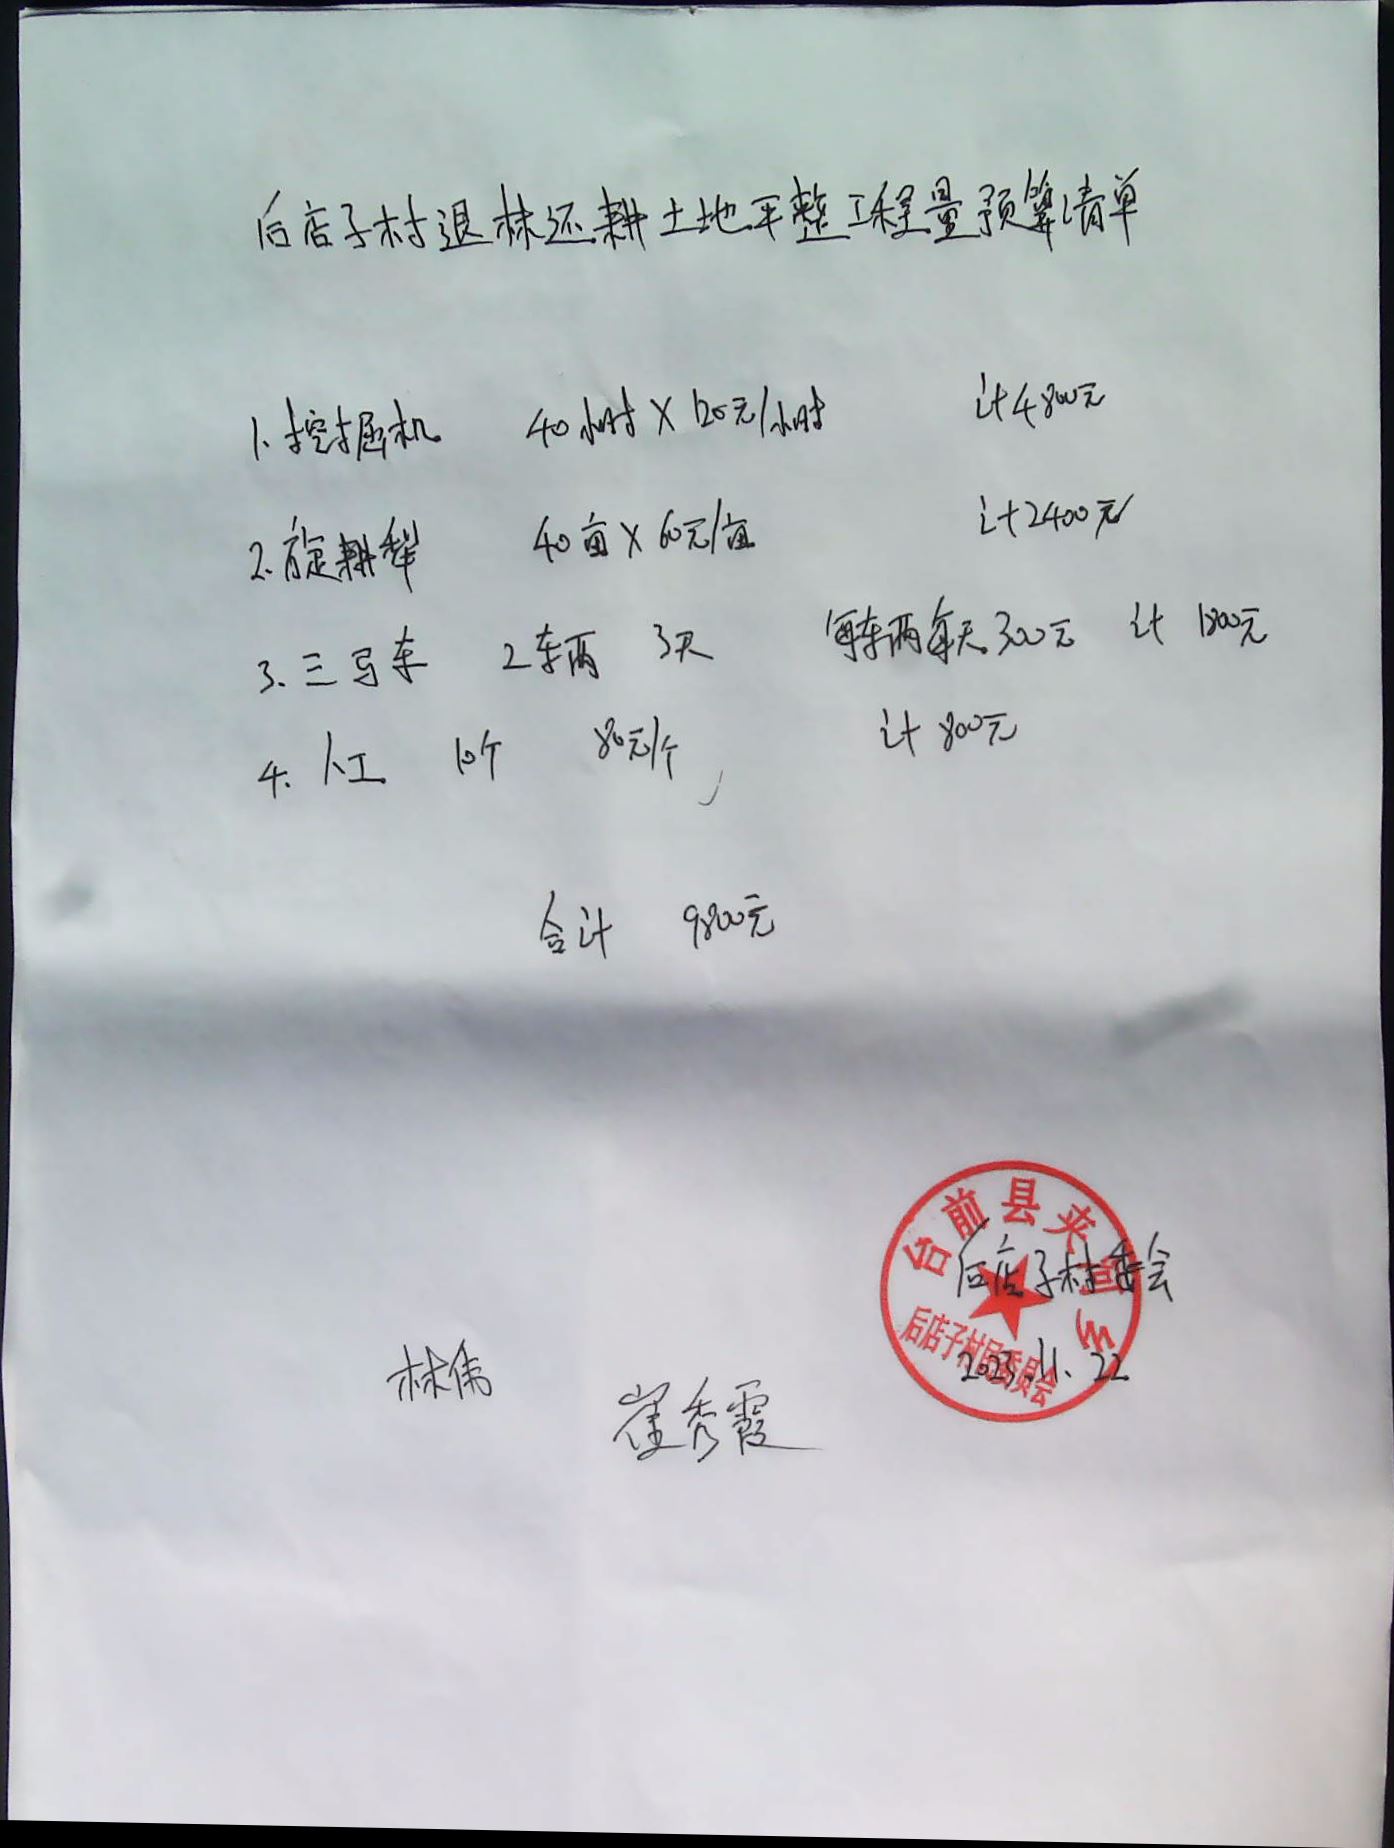 后店子村退林还耕土地平整工程量预算清单
1、挖掘机 40小时×120元/小时 计4800元
2、旋耕犁 40亩×60元/亩 计2400元
3、三马车 2车两 3天 每车两每天300元 计1800元
4、人工 10个 80元/个 计800元
合计 9800元
台前县夹河乡
后店子村委会
后店子村民委员会
2023.11.22
林伟
崔秀霞